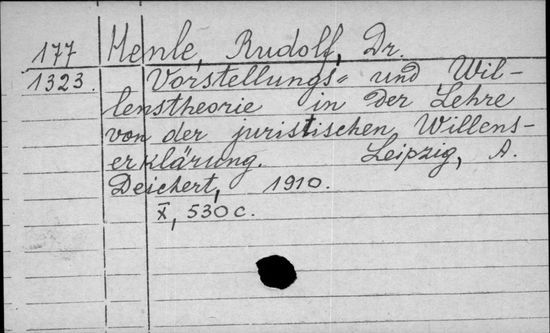 177 Henle, Rudolf, Dr.
1323. Vorstellungs- und Wil-
lenstheorie in der Lehre
von der juristischen Willens-
erklärung. Leipzig, A.
Deichert, 1910.
X, 530 c.